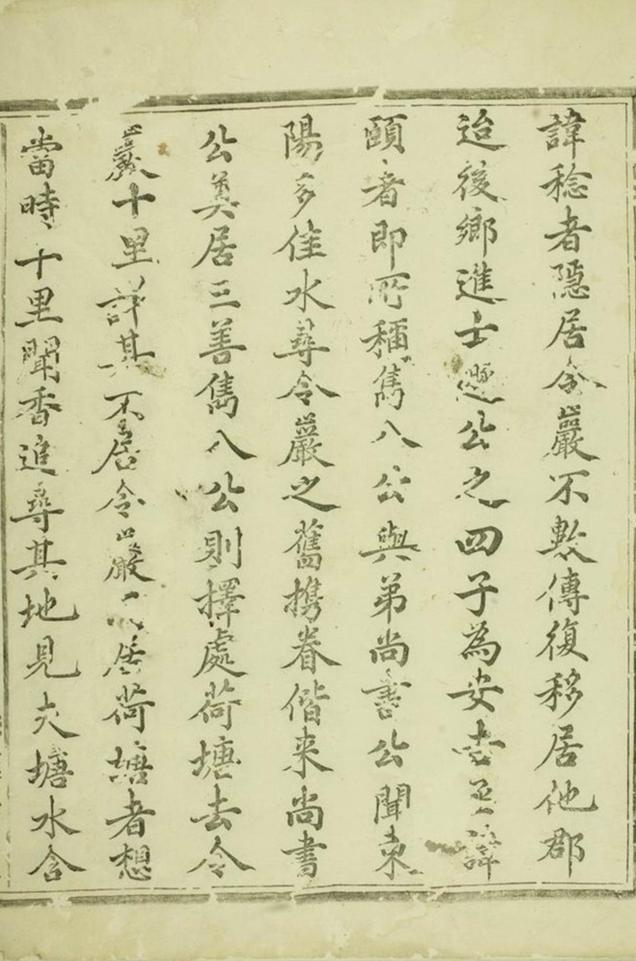 諱稔者隱居令巖不數傳復移居他郡
迨後鄉進士愻公之四子為安世丞諱
頤者即所稱雋八公與弟尚書公聞東
陽多佳水尋令巖之舊携眷偕来尚書
公奠居三善雋八公則擇處荷塘去令
巖十里許其不居令巖居荷塘者想
當時十里聞香追尋其地見大塘水含